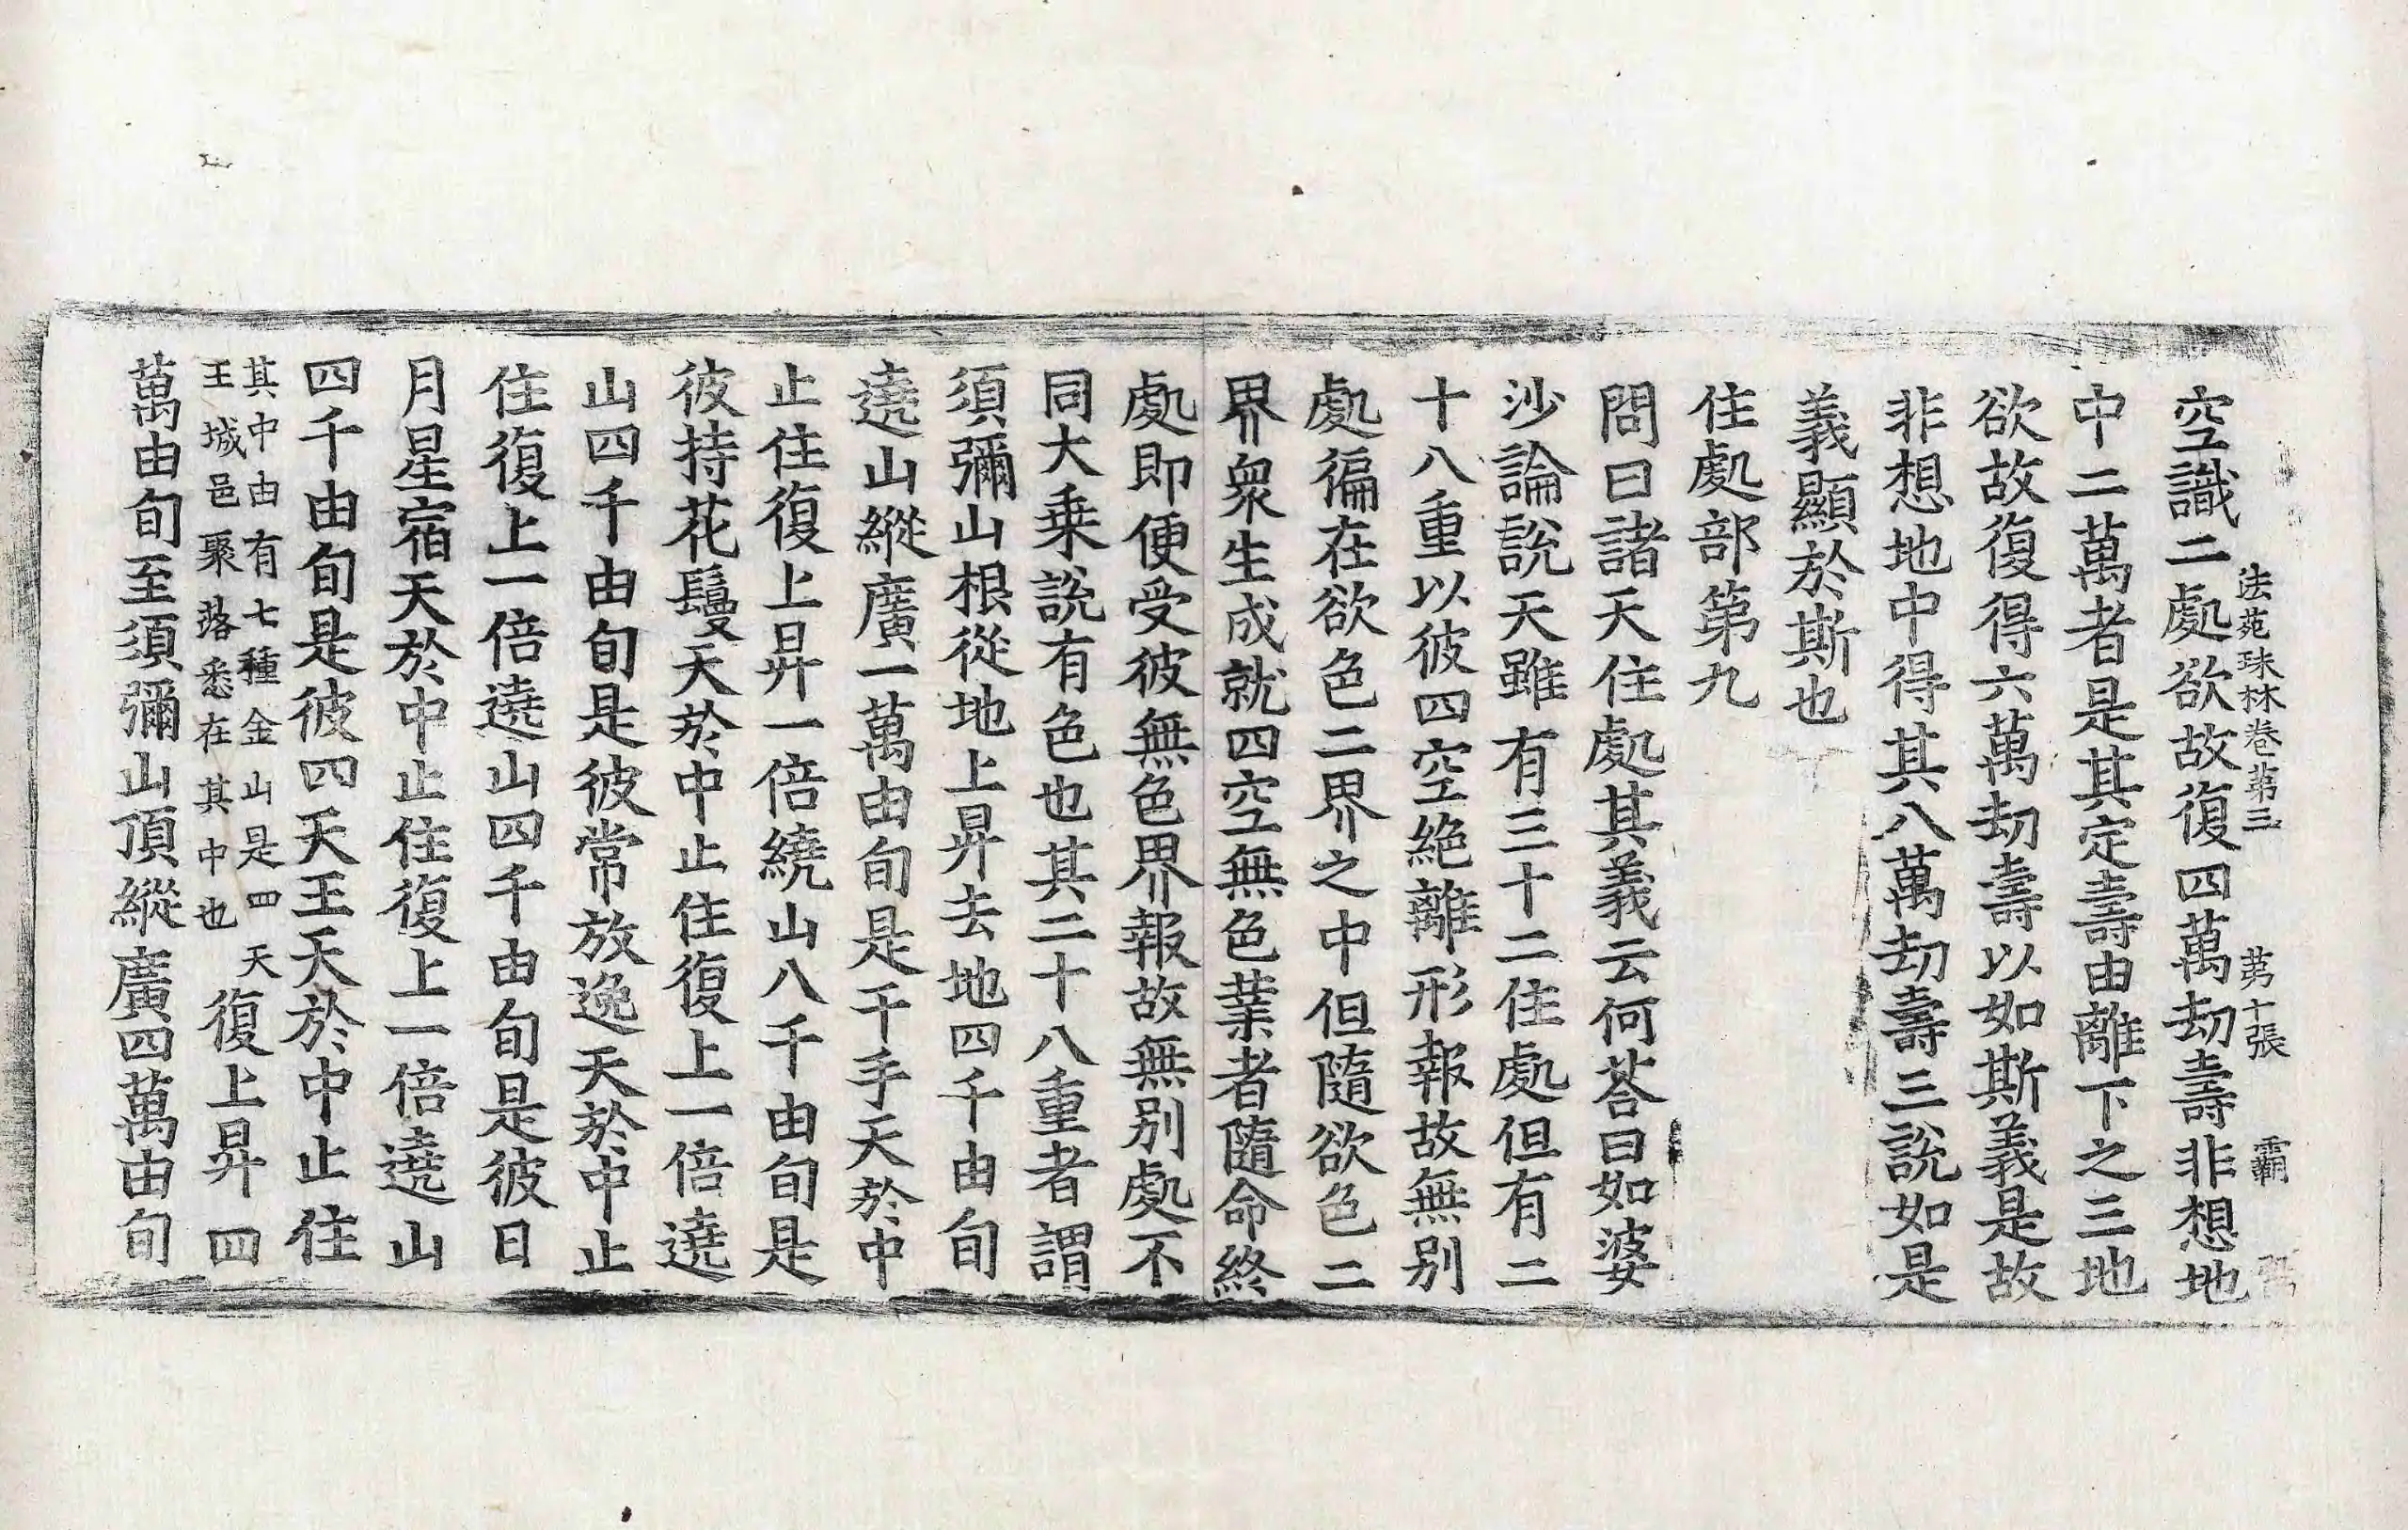 法苑珠林卷第三　第十張　霸
空識二處欲故復四萬劫壽非想地
中二萬者是其定壽由離下之三地
欲故復得六萬劫壽以如斯義是故
非想地中得其八萬劫壽三說如是
義顯於斯也
住處部第九
問曰諸天住處其義云何荅曰如婆
沙論說天雖有三十二住處但有二
十八重以彼四空絶離形報故無別
處徧在欲色二界之中但隨欲色二
界衆生成就四空無色業者隨命終
處即便受彼無色界報故無別處不
同大乗說有色也其二十八重者謂
須彌山根從地上昇去地四千由旬
遶山縱廣一萬由旬是千手天於中
止住復上昇一倍繞山八千由旬是
彼持花鬘天於中止住復上一倍遶
山四千由旬是彼常放逸天於中止
住復上一倍遶山四千由旬是彼日
月星宿天於中止住復上一倍遶山
四千由旬是彼四天王天於中止住
其中由有七種金山是四天
王城邑聚落悉在其中也
復上昇四
萬由旬至須彌山頂縱廣四萬由旬